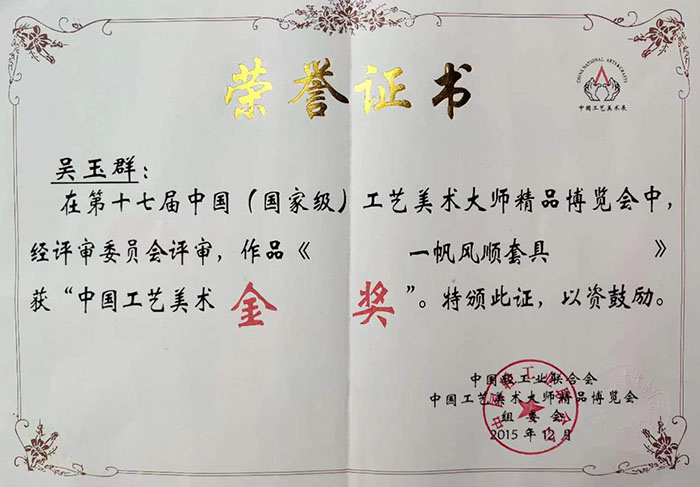 荣誉证书
CHINA NATIONAL ARTS & CRAFTS
中国工艺美术展
吴玉群：
在第十七届中国（国家级）工艺美术大师精品博览会中，
经评审委员会评审，作品《 一帆风顺套具 》
获“中国工艺美术 金 奖 ”。特颁此证，以资鼓励。
中国轻工业联合会
中国工艺美术大师精品博览会
组委会
2015年12月